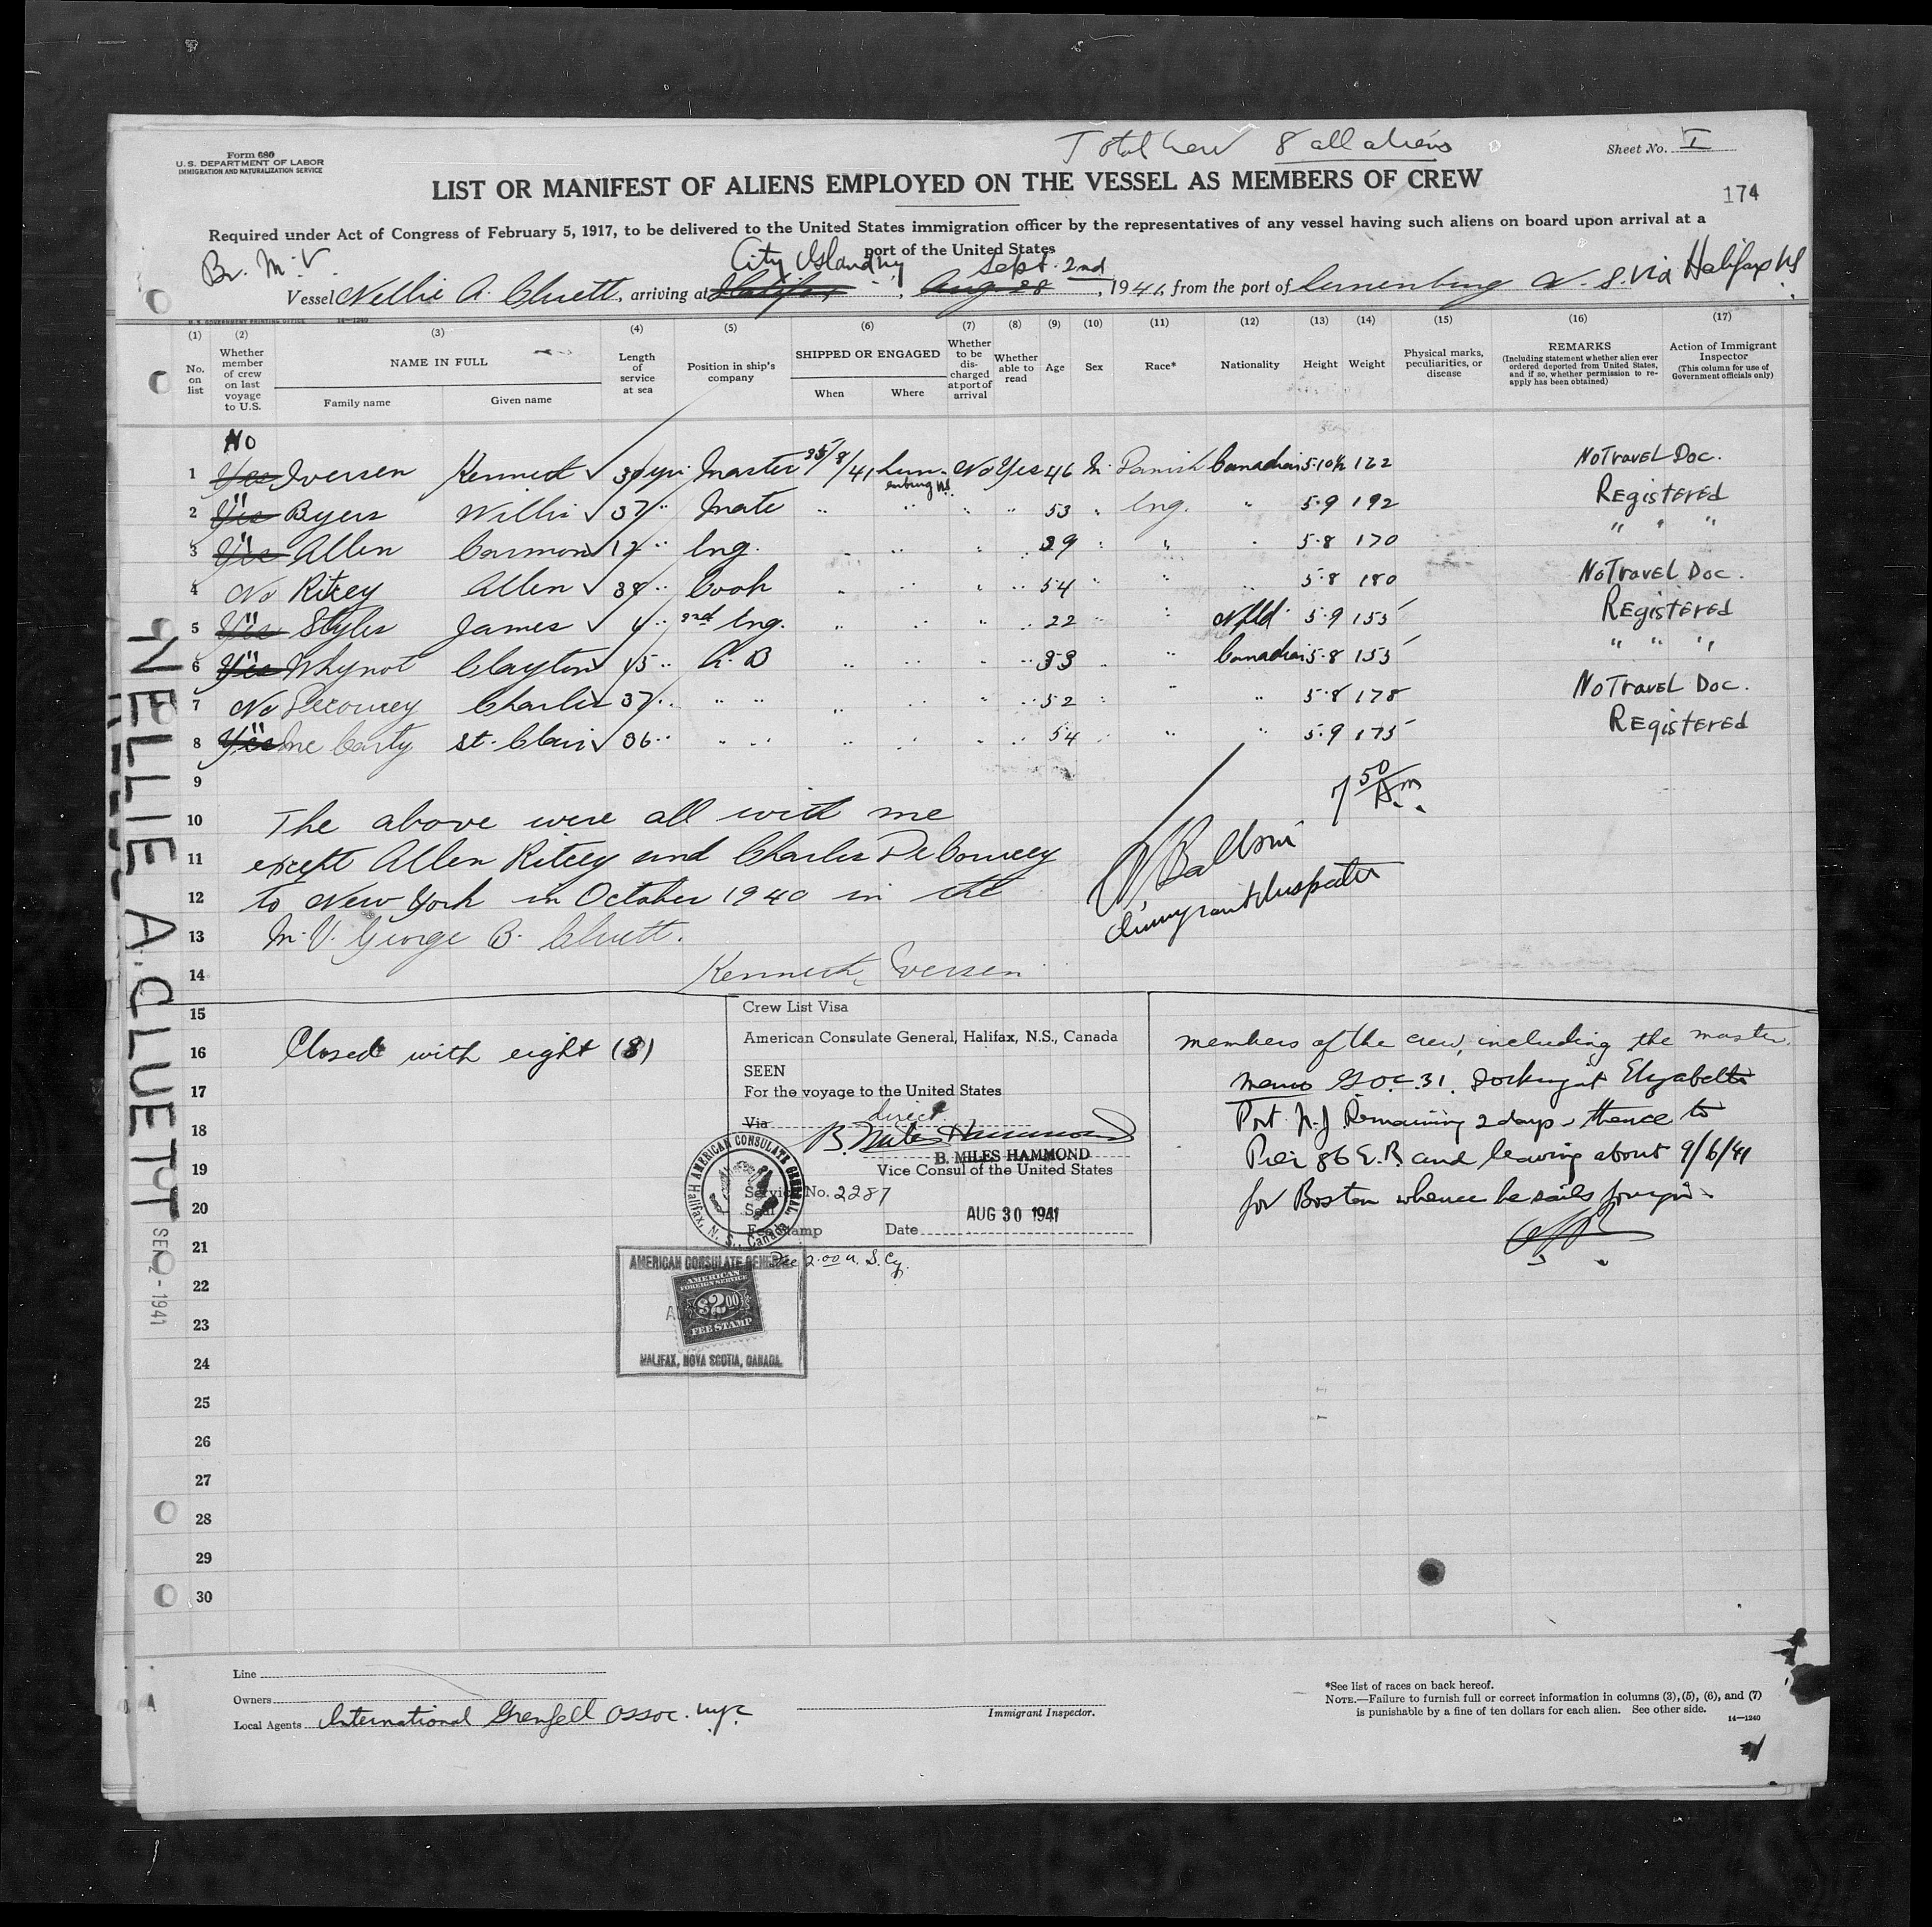 Form 680
U.S. DEPARTMENT OF LABOR
IMMIGRATION AND NATURALIZATION SERVICE
Total Crew 8 all aliens
Sheet No. I
LIST OR MANIFEST OF ALIENS EMPLOYED ON THE VESSEL AS MEMBERS OF CREW
174
Required under Act of Congress of February 5, 1917, to be delivered to the United States immigration officer by the representatives of any vessel having such aliens on board upon arrival at a
port of the United States
Br. M.V.
City Island NY Sept. 2nd
Vessel Nellie A. Cluett, arriving at Halifax, Aug 28, 1941, from the port of Lunenburg N.S. via Halifax NS
U.S. GOVERNMENT PRINTING OFFICE 14—1240
(1) (2) (3) (4) (5) (6) (7) (8) (9) (10) (11) (12) (13) (14) (15) (16) (17)
No. on list
Whether member of crew on last voyage to U.S.
NAME IN FULL
Family name Given name
Length of service at sea
Position in ship's company
SHIPPED OR ENGAGED
When Where
Whether to be discharged at port of arrival
Whether able to read
Age
Sex
Race*
Nationality
Height
Weight
Physical marks, peculiarities, or disease
REMARKS
(Including statement whether alien ever ordered deported from United States, and if so, whether permission to reapply has been obtained)
Action of Immigrant Inspector
(This column for use of Government officials only)
No
1 Yes Iversen Kenneth ✓ 30 yrs. Master 25/8/41 Lunenburg NS. No Yes 46 M. Danish Canadian 5-10½ 162 No Travel Doc.
2 Yes " Byers Willis ✓ 37 " Mate " " " " 53 " Eng. " 5-9 192 Registered
3 Yes " Allen Carmon ✓ 17 " Eng. " " " " 29 " " " 5-8 170 " " "
4 No Ritcey Allen ✓ 38 " Cook " " " " 54 " " " 5-8 180 No Travel Doc.
5 Yes " Styles James ✓ 4 " 2nd Eng. " " " " 22 " " Nfld 5-9 155 Registered
6 Yes " Whynot Clayton ✓ 15 " A.B " " " " 33 " " Canadian 5-8 155 " " "
7 No Decourcy Charles 37 " " " " " " " 52 " " " 5-8 178 No Travel Doc.
8 Yes " Mc Carty St. Clair ✓ 36 " " " " " " " 54 " " " 5-9 175 Registered
9
7 50 A.m.
10 The above were all with me
11 except Allen Ritcey and Charles DeCourcey
12 to New York in October 1940 in the
13 M.V. George B. Cluett.
14 Kenneth Iversen
Immigrant Inspector
15
16 Closed with eight (8)
17
18
19
20
21
22
23
24
25
26
27
28
29
30
Crew List Visa
American Consulate General, Halifax, N.S., Canada
SEEN
For the voyage to the United States
Via direct
B. Miles Hammond
B. MILES HAMMOND
Vice Consul of the United States
Service No. 2287
Seal
Fee Stamp Date AUG 30 1941
Fee 2.00 U.S. Cy.
AMERICAN CONSULATE GENERAL
Halifax, N. S., Canada
AMERICAN CONSULATE GENERAL
AMERICAN
FOREIGN SERVICE
$2.00
FEE STAMP
HALIFAX, NOVA SCOTIA, CANADA.
members of the crew, including the master.
Memo G.O.C. 31. Docking at Elizabeth
Port N.J Remaining 2 days - thence to
Pier 86 E.R. and leaving about 9/6/41
for Boston whence he sails foreign.
NELLIE A. CLUETT
SEP 2 - 1941
Line
Owners
Local Agents International Grenfell Assoc. nyc
Immigrant Inspector.
*See list of races on back hereof.
NOTE.—Failure to furnish full or correct information in columns (3), (5), (6), and (7)
is punishable by a fine of ten dollars for each alien. See other side.
14—1240